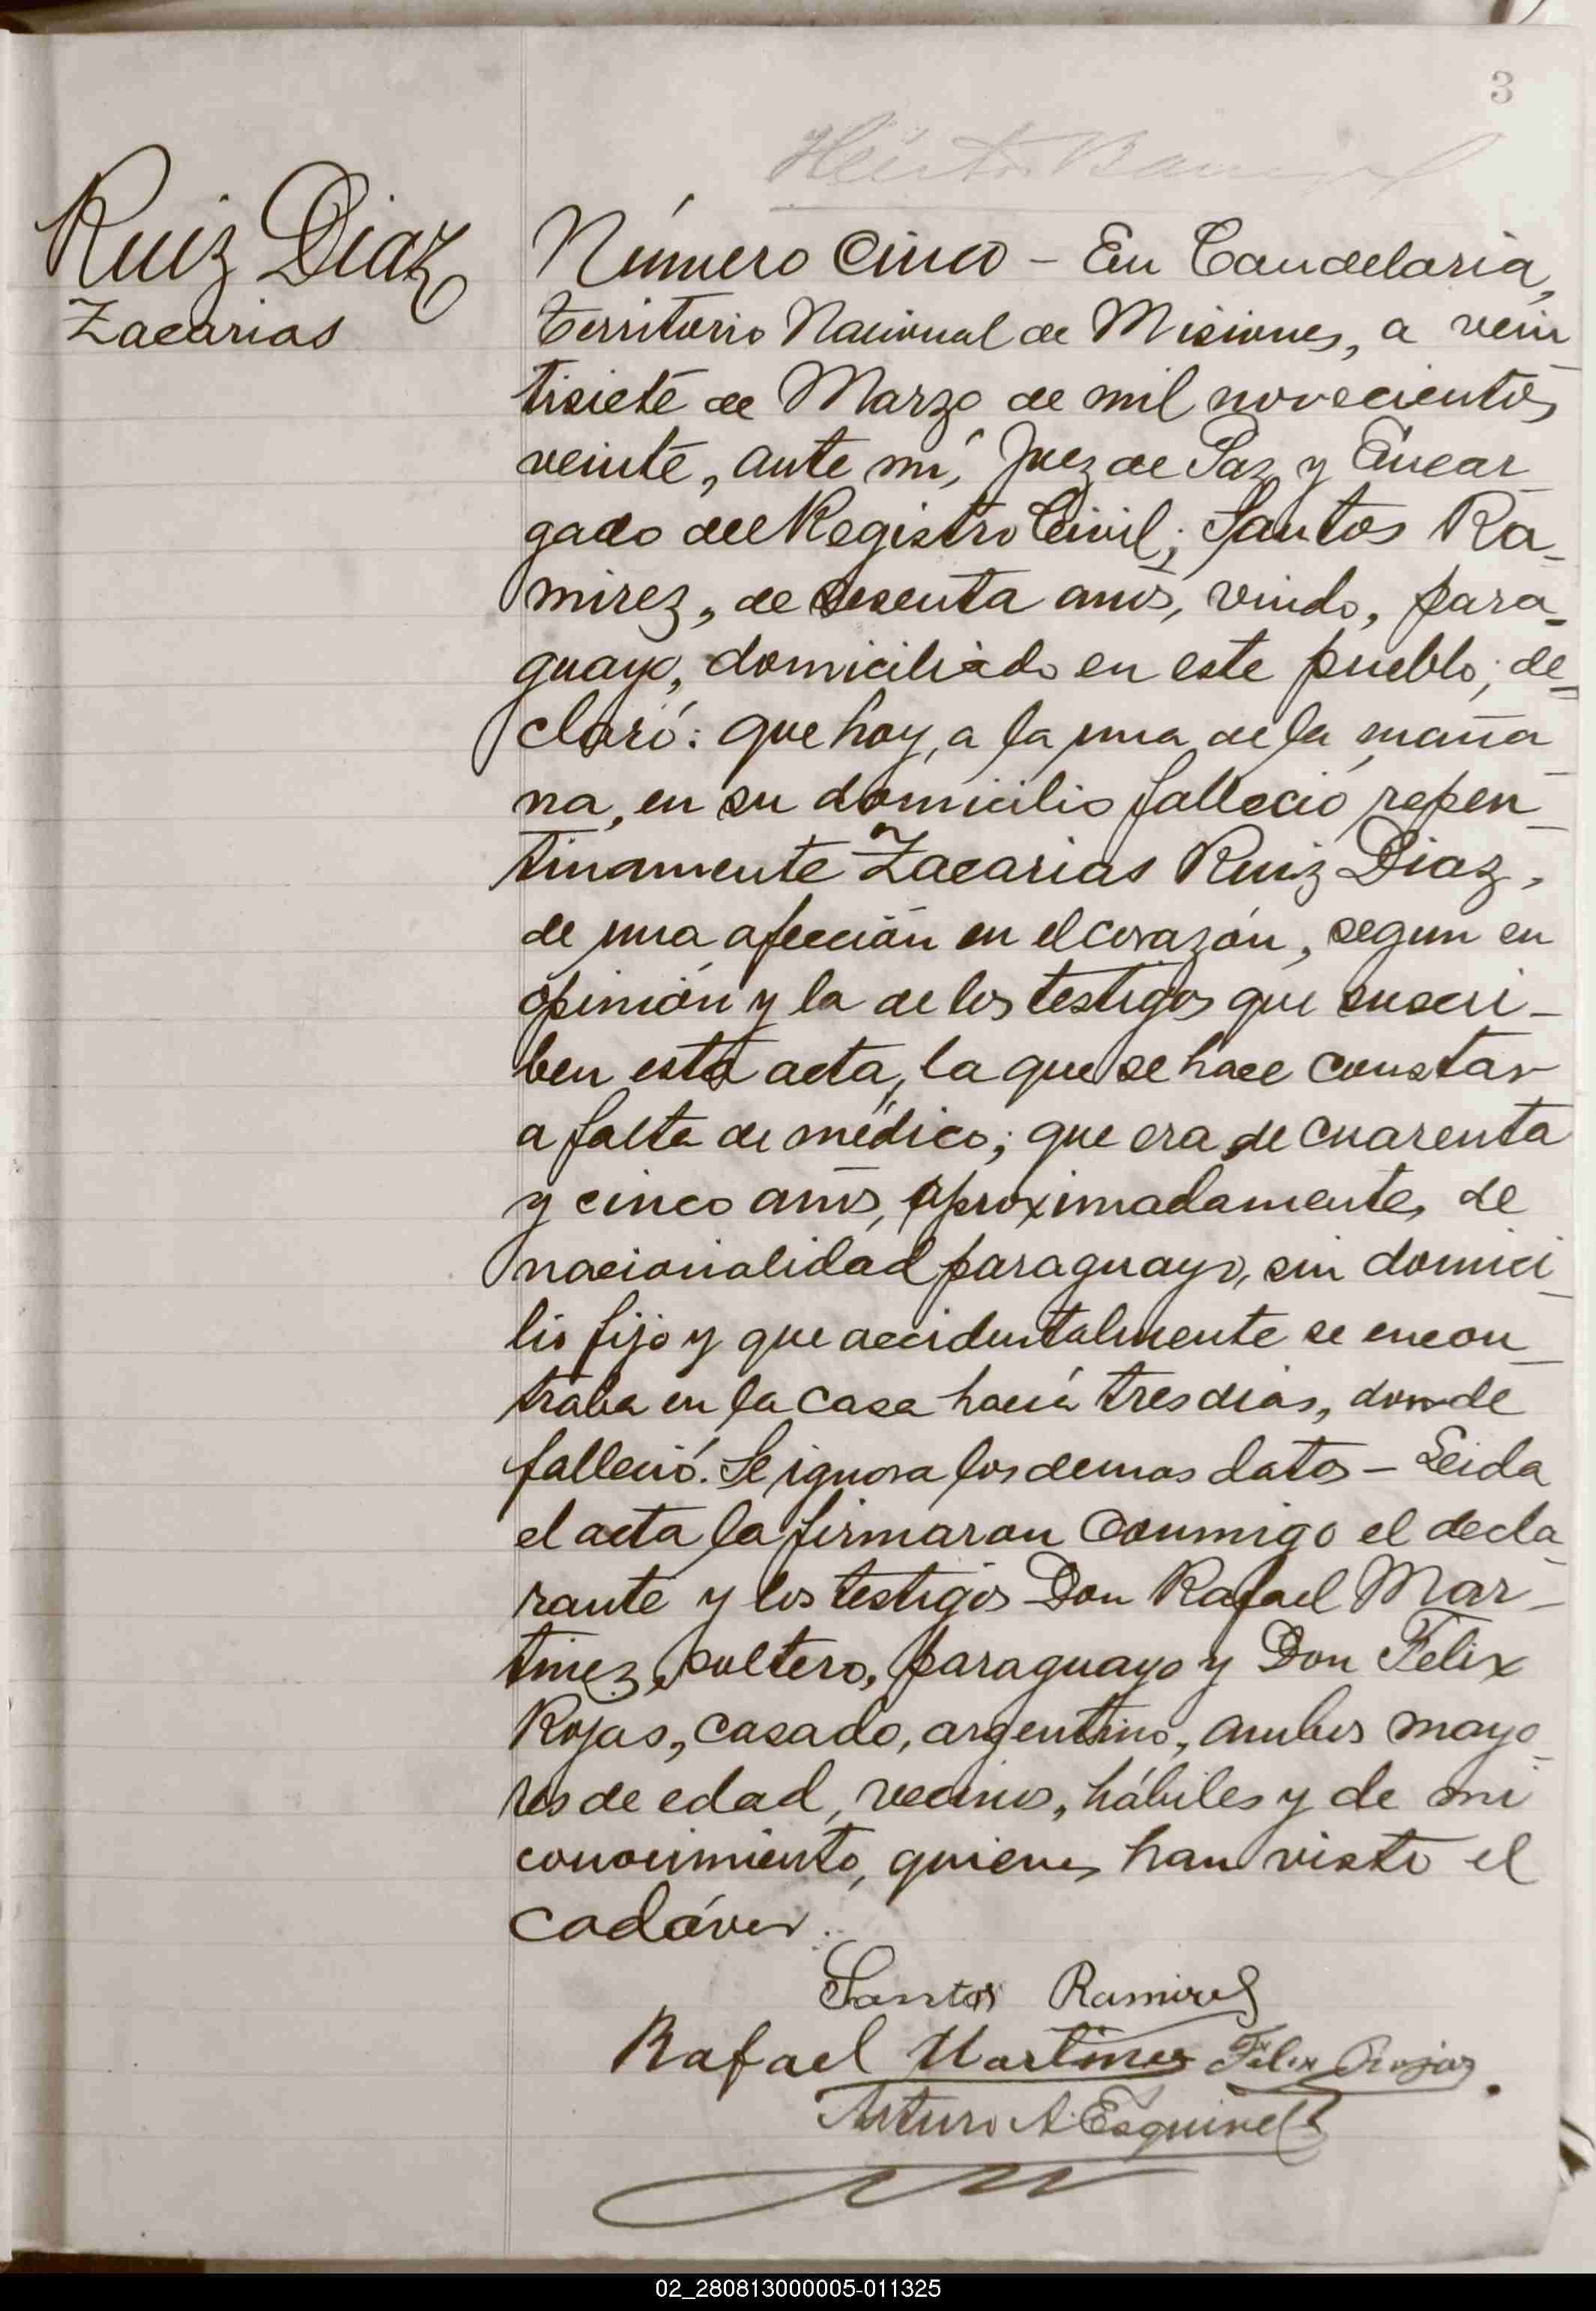 3
Ruiz Diaz
Zacarias
Número Cinco – En Candelaria,
territorio Nacional de Misiones, a vein
tisiete de Marzo de mil novecientos
veinte, ante mí, Juez de Paz y Encar
gado del Registro Civil; Santos Ra-
mirez, de sesenta años, viudo, para-
guayo, domiciliado en este pueblo; de=
claró: que hoy, a la una de la maña
na, en su domicilio falleció repen
tinamente Zacarias Ruiz Diaz,
de una afección en el corazón, segun su
opinión y la de los testigos que suscri-
ben esta acta, la que se hace constar
a falta de médico; que era de cuarenta
y cinco años, aproximadamente, de
nacionalidad paraguayo, sin domici
lio fijo y que accidentalmente se encon
traba en la casa hacía tres dias, donde
falleció. Se ignora los demas datos – Leida
el acta la firmaron conmigo el decla
rante y los testigos Don Rafael Mar-
tinez, soltero, paraguayo y Don Felix
Rojas, casado, argentino, ambos mayo
res de edad, vecinos, hábiles y de mi
conocimiento, quienes han visto el
cadáver.
Santos Ramirez
Rafael Martinez Felix Rojas.
Arturo A. Esquivel
02_280813000005-011325